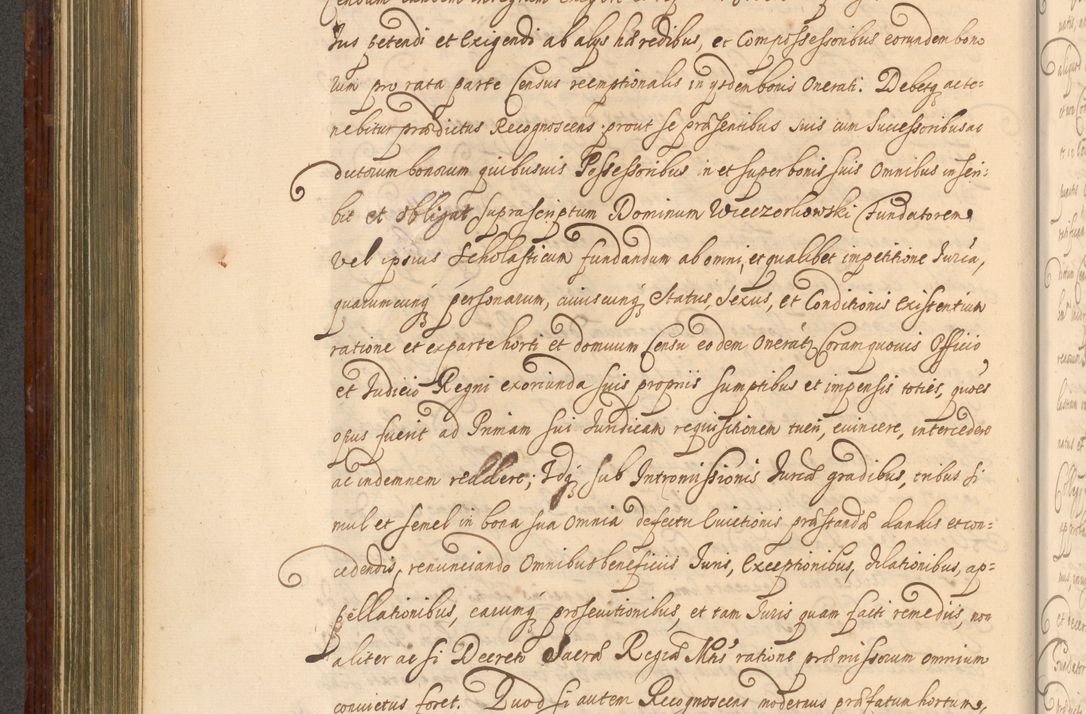 Jus petendi et Exigendi ab alys hæredibus, et Compossessoribus eorundem bono
rum pro rata parte Census reemptionalis in ysdem bonis Onerati. Debetq acte-
nebitur prædictus Recognoscens prout se præsentibus suis cum Successoribus ac
dictorum bonorum quibusuis Possessoribus in et super bonis suis Omnibus inscri-
bit et obligat suprascriptum Dominum Wieczorkowski Fundatorem
vel ipsius Scholasticum fundandum ab omni, et qualibet impetitione Juria,
quarumcunq personarum, cuiuscunq Status Sexus, et Conditionis Existentium
ratione et ex parte horti et domuum Censu eodem Onerat, Coram quouis Officio
et Judicio Regni exoriunda suis propriis sumptibus et impensis toties, quoties
opus fuerit ad Primam sui Juridicam requisitionem tueri, euincere, intercedere
ac indemnem reddere; Idq sub Intromissionis Juriæ gradibus, tribus si
mul et semel in bona sua Omnia defectu Euictionis præstandæ dandis et con-
cedendis, renunciando Omnibus beneficiis Juris, Exceptionibus, dilationibus, ap-
pellationibus, earumq prosecutionibus, et tam Juris quam facti remediis, non
aliter ac si Decreto Sacræ Regiæ Mtis ratione præmissorum omnium
conuictus foret. Quod si autem Recognoscens modernus præfatum hortum,